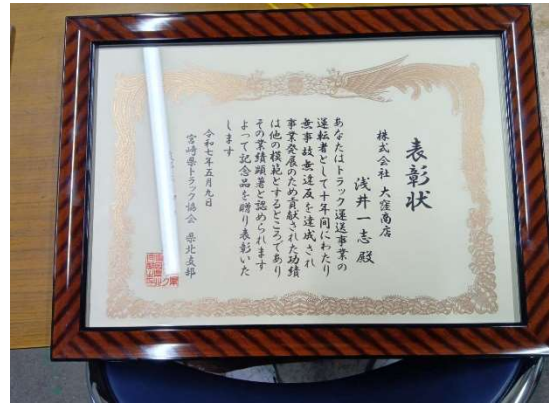 表彰状
株式会社 大窪商店
浅井一志 殿
あなたはトラック運送事業の
運転者として十年間にわたり
無事故無違反を達成され
事業発展のため貢献された功績
は他の模範とするところであり
その業績顕著と認められます
よって記念品を贈り表彰いた
します
令和七年五月九日
宮崎県トラック協会 県北支部